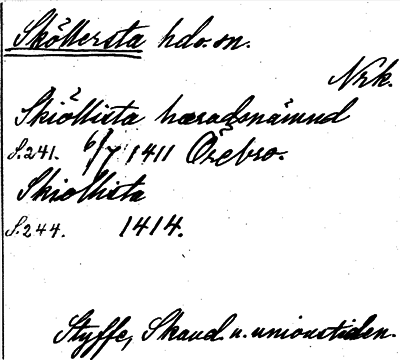 Sköllersta hds.-n.
Nrk.
Skiöllista hæradsnämnd
S.241. 6/7 1411 Örebro.
Skiollista
S.244. 1414.
Styffe, Skand. u. unionstiden.